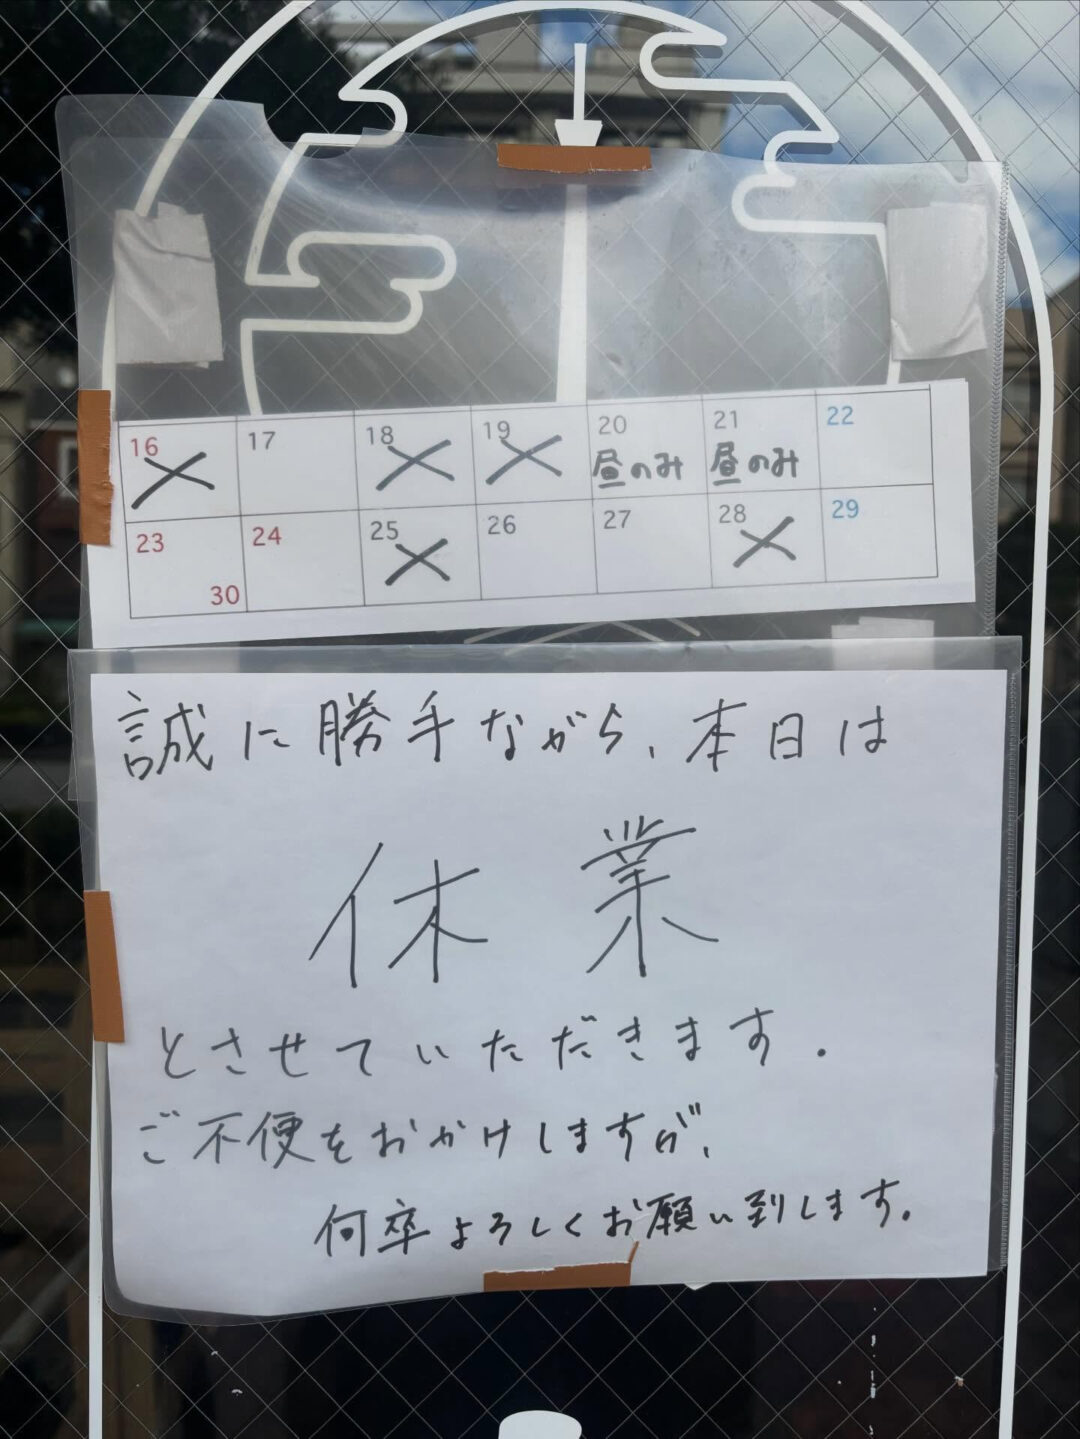 16 17 18 19 20 21 22
昼のみ 昼のみ
23 24 25 26 27 28 29
30
誠に勝手ながら、本日は
休業
とさせていただきます.
ご不便をおかけしますが、
何卒よろしくお願い到します。